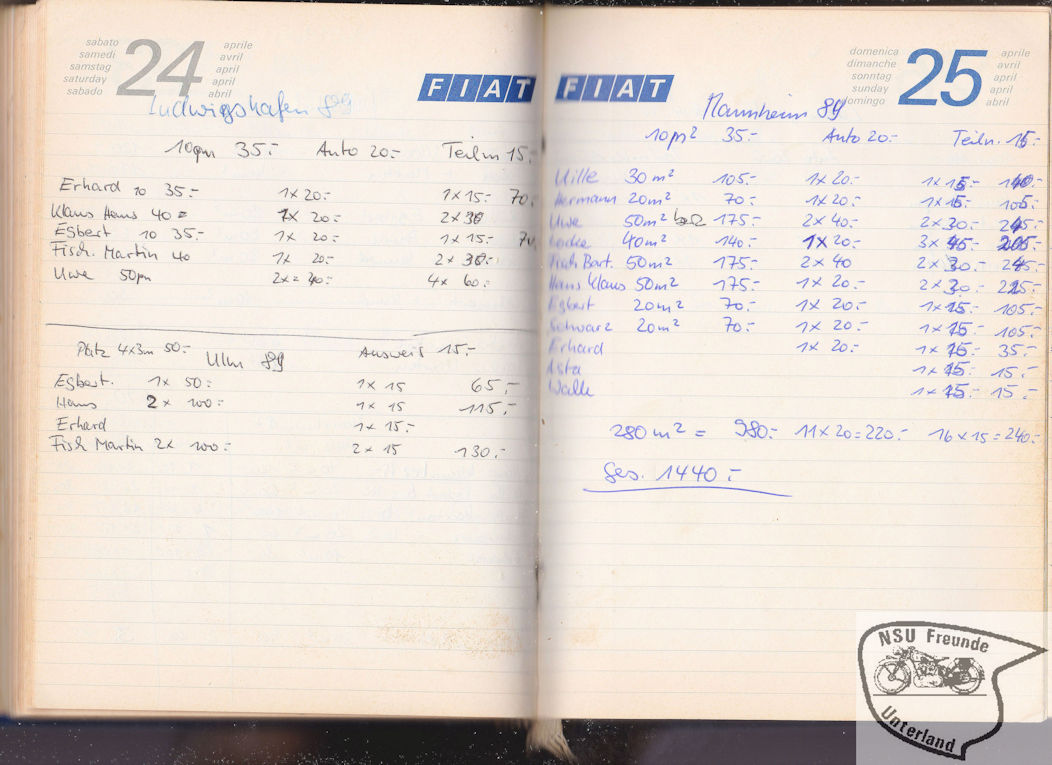 sabato aprile
samedi avril
samstag 24 april
saturday april
sabado abril
FIAT
Ludwigshafen 89
10qm 35.- Auto 20.- Teiln 15.-
Erhard 10 35.- 1x 20.- 1x 15.- 70.-
Klaus Hans 40 = 1x 20.- 2x 30
Egbert 10 35.- 1x 20.- 1x 15.- 70.
Fisch. Martin 40 1x 20.- 2x 30.-
Uwe 50qm 2x = 40.- 4x 60.-
Platz 4x3m 50.- Ulm 89 Ausweis 15.-
Egbert. 1x 50.- 1x 15 65,-
Hans 2x 100.- 1x 15 115.-
Erhard 1x 15.-
Fisch Martin 2x 100.- 2x 15 130.-
domenica aprile
dimanche avril
sonntag 25 april
sunday april
domingo abril
FIAT
Mannheim 89
10m² 35.- Auto 20.- Teiln. 15.-
Wille 30m² 105.- 1x 20.- 1x 15.- 140.-
Hermann 20m² 70.- 1x 20.- 1x 15.- 105.-
Uwe 50m² 175.- 2x 40.- 2x 30.- 245.-
40m² 140.- 1x 20.- 3x 45.- 205.-
Fisch Bart. 50m² 175.- 2x 40 2x 30.- 245.-
Hans Klaus 50m² 175.- 1x 20.- 2x 30.- 225.-
Egbert 20m² 70.- 1x 20.- 1x 15.- 105.-
Schwarz 20m² 70.- 1x 20.- 1x 15.- 105.-
Erhard 1x 20.- 1x 15.- 35.-
1x 15.- 15.-
1x 15.- 15.-
280m² = 980.- 11x20=220.- 16x15=240.-
Ges. 1440.-
NSU Freunde
Unterland